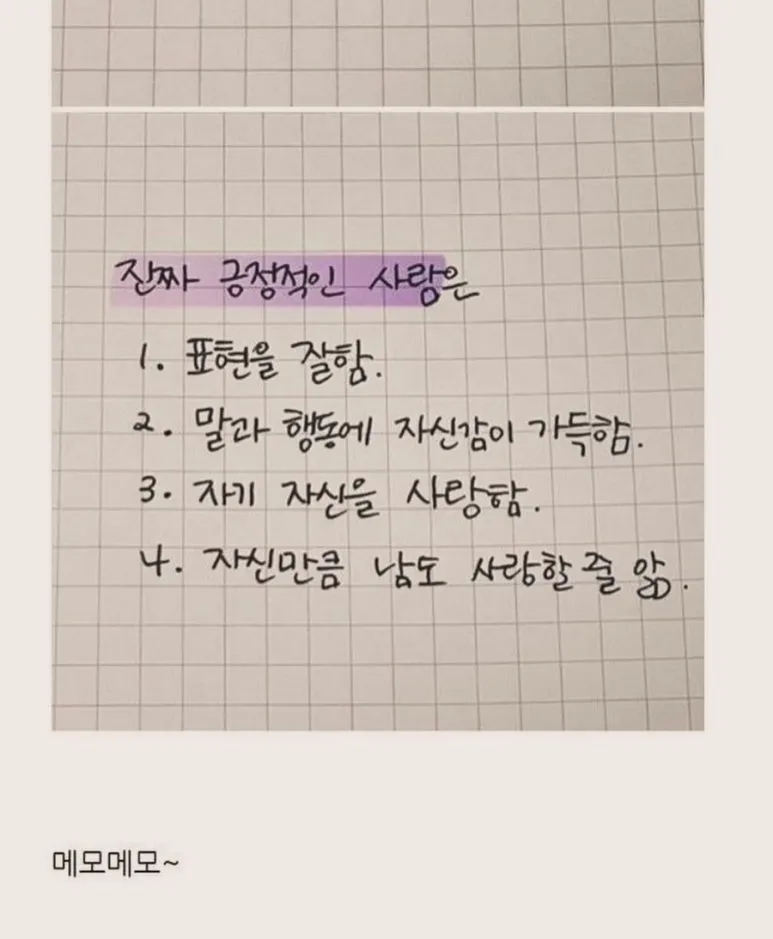 진짜 긍정적인 사람은
1. 표현을 잘함.
2. 말과 행동에 자신감이 가득함.
3. 자기 자신을 사랑함.
4. 자신만큼 남도 사랑할 줄 앎.
메모메모~